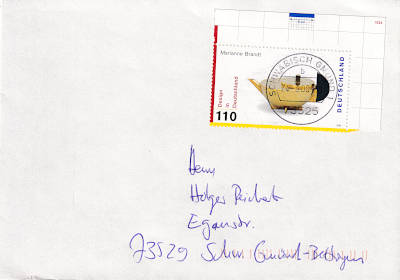 Marianne Brandt
Design
in
Deutschland
110
DEUTSCHLAND
SCHWÄBISCH GMÜND 1
73525
Herrn
Holger
73529 Schw. Gmünd-Bettringen